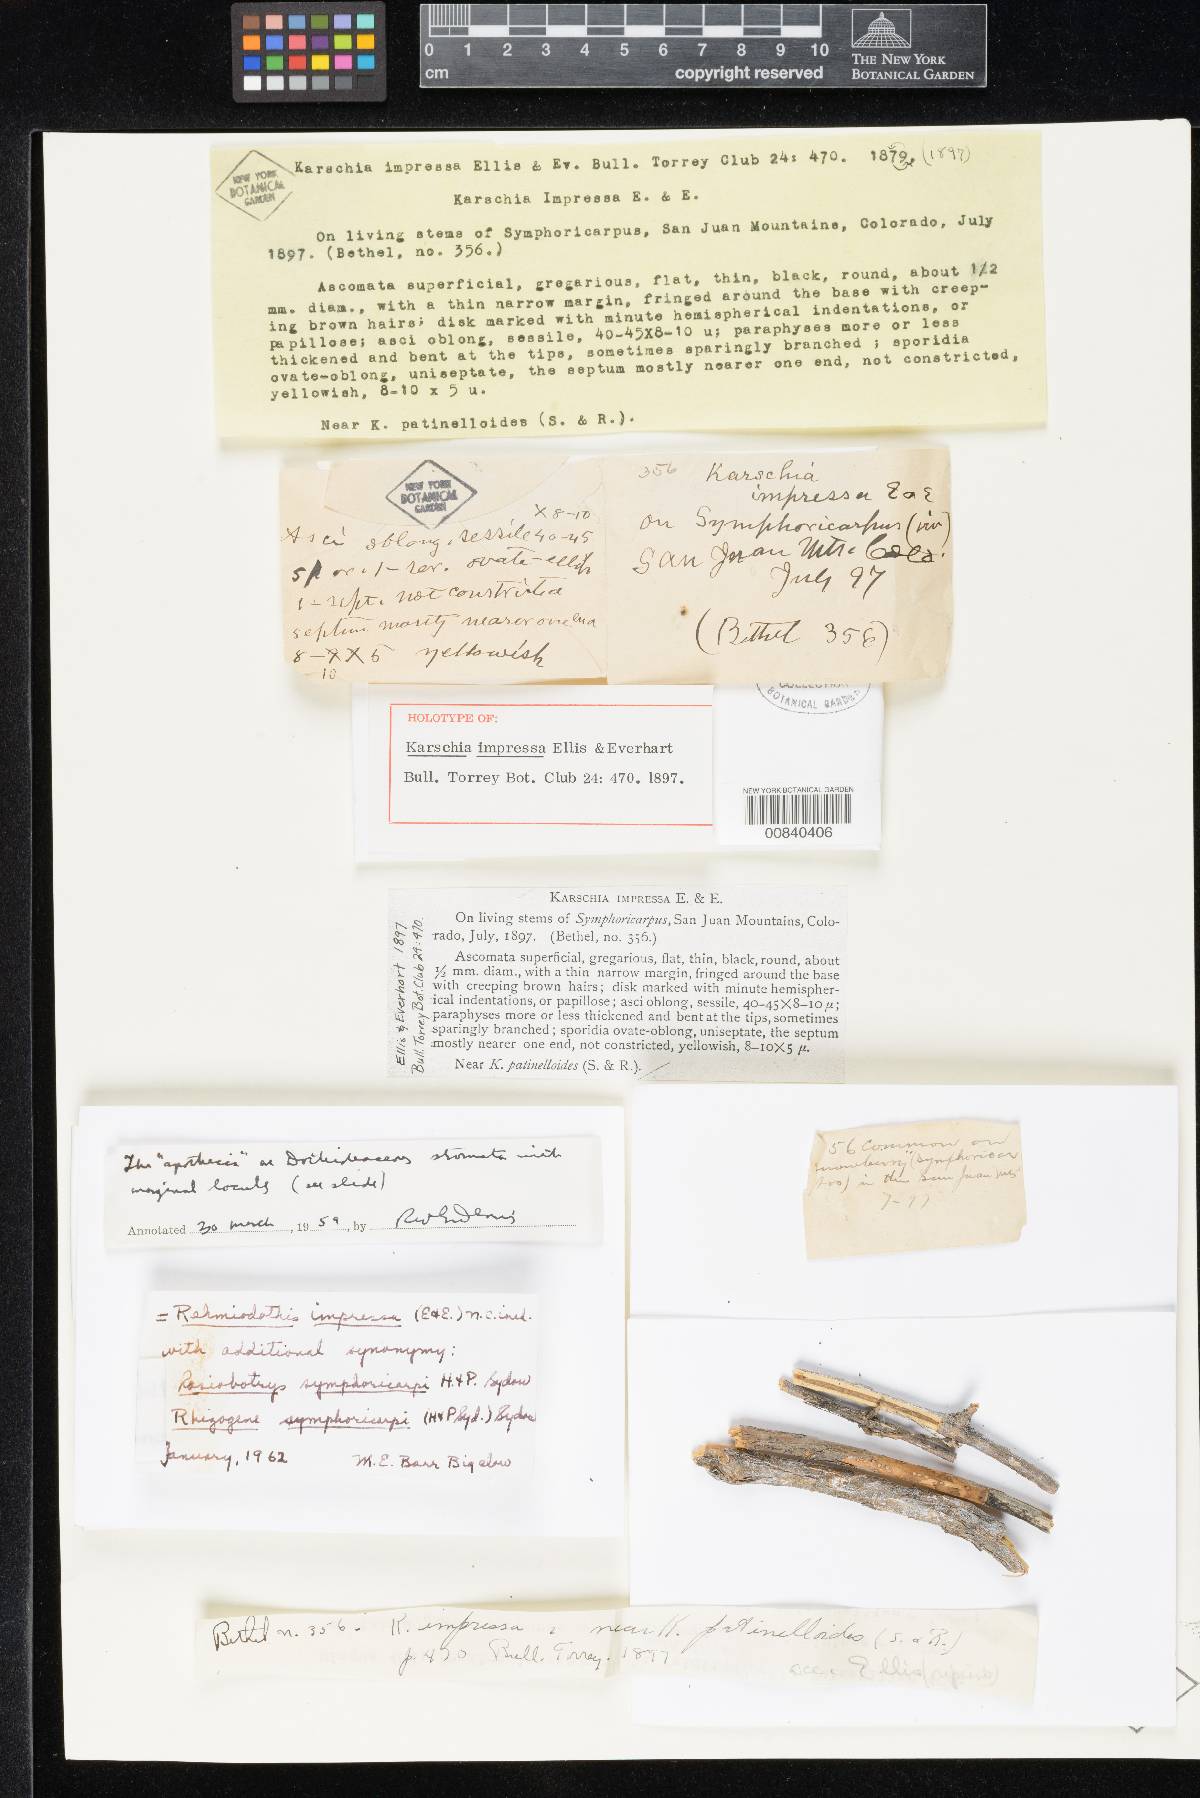 0 1 2 3 4 5 6 7 8 9 10
cm
copyright reserved
THE NEW YORK
BOTANICAL GARDEN
NEW YORK
BOTANICAL
GARDEN
Karschia impressa Ellis & Ev. Bull. Torrey Club 24: 470. 1879. (1897)
Karschia Impressa E. & E.
On living stems of Symphoricarpus, San Juan Mountains, Colorado, July
1897. (Bethel, no. 356.)
Ascomata superficial, gregarious, flat, thin, black, round, about 1/2
mm. diam., with a thin narrow margin, fringed around the base with creep-
ing brown hairs; disk marked with minute hemispherical indentations, or
papillose; asci oblong, sessile, 40-45X8-10 u; paraphyses more or less
thickened and bent at the tips, sometimes sparingly branched ; sporidia
ovate-oblong, uniseptate, the septum mostly nearer one end, not constricted,
yellowish, 8-10 x 5 u.
Near K. patinelloides (S. & R.).
NEW YORK
BOTANICAL
GARDEN
X 8-10
Asci oblong, sessile 40-45
ovate-
1-sept. not constricted
septum mostly nearer one end
8-9X5 yellowish
10
356 Karschia
impressa E & E
on Symphoricarpus (viv)
San Juan Mts. Colo.
July 97
(Bethel 356)
BOTANICAL GARDEN
HOLOTYPE OF:
Karschia impressa Ellis & Everhart
Bull. Torrey Bot. Club 24: 470. 1897.
NEW YORK BOTANICAL GARDEN
00840406
Ellis & Everhart 1897
Bull. Torrey Bot. Club 24:470.
KARSCHIA IMPRESSA E. & E.
On living stems of Symphoricarpus, San Juan Mountains, Colo-
rado, July, 1897. (Bethel, no. 356.)
Ascomata superficial, gregarious, flat, thin, black, round, about
½ mm. diam., with a thin narrow margin, fringed around the base
with creeping brown hairs; disk marked with minute hemispher-
ical indentations, or papillose; asci oblong, sessile, 40–45×8–10 μ;
paraphyses more or less thickened and bent at the tips, sometimes
sparingly branched; sporidia ovate-oblong, uniseptate, the septum
mostly nearer one end, not constricted, yellowish, 8–10×5 μ.
Near K. patinelloides (S. & R.).
The "apothecia" are Dothideaceous stromata with
marginal locules (see slide)
Annotated 30 March, 1959, by
= Rehmiodothis impressa (E&E.) n.c. ined.
with additional synonymy:
Rosiobotrys symphoricarpi H.&P. Sydow
Rhizogene symphoricarpi (H&P Syd.) Sydow
January, 1962 M.E. Barr Bigelow
56 Common on
(Symphoricar
pos) in the San Juan Mts
7-97
Bethel n. 356. K. impressa near K. patinelloides (S. & R.)
p. 470 Bull. Torrey. 1897
Ellis